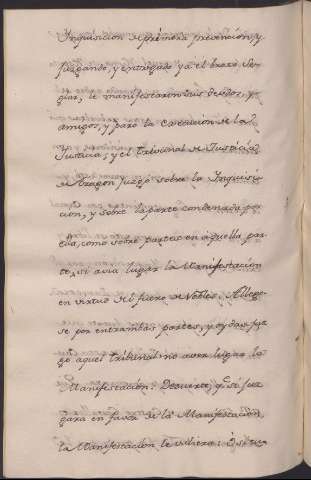 Inquisicion de primera prevencion, y
juzgando, y entregado ya el brazo Se-
glar, le manifestaron sus deudos, y
amigos, y paró la execucion de la
Justicia; y el Tribunal de Justicia
de Aragon juzgó sobre la Inquisi-
cion, y sobre la parte condenada por
ella, como sobre partes en aquella par-
te, si avia lugar la Manifestacion
en virtud del fuero de Nobles. Allego-
se por entrambas partes, y oydas juz-
gó aquel tribunal no aver lugar la
Manifestacion: Desuerte, que si juz-
gara en favor de la Manifestacion,
la Manifestacion le valiera: O si